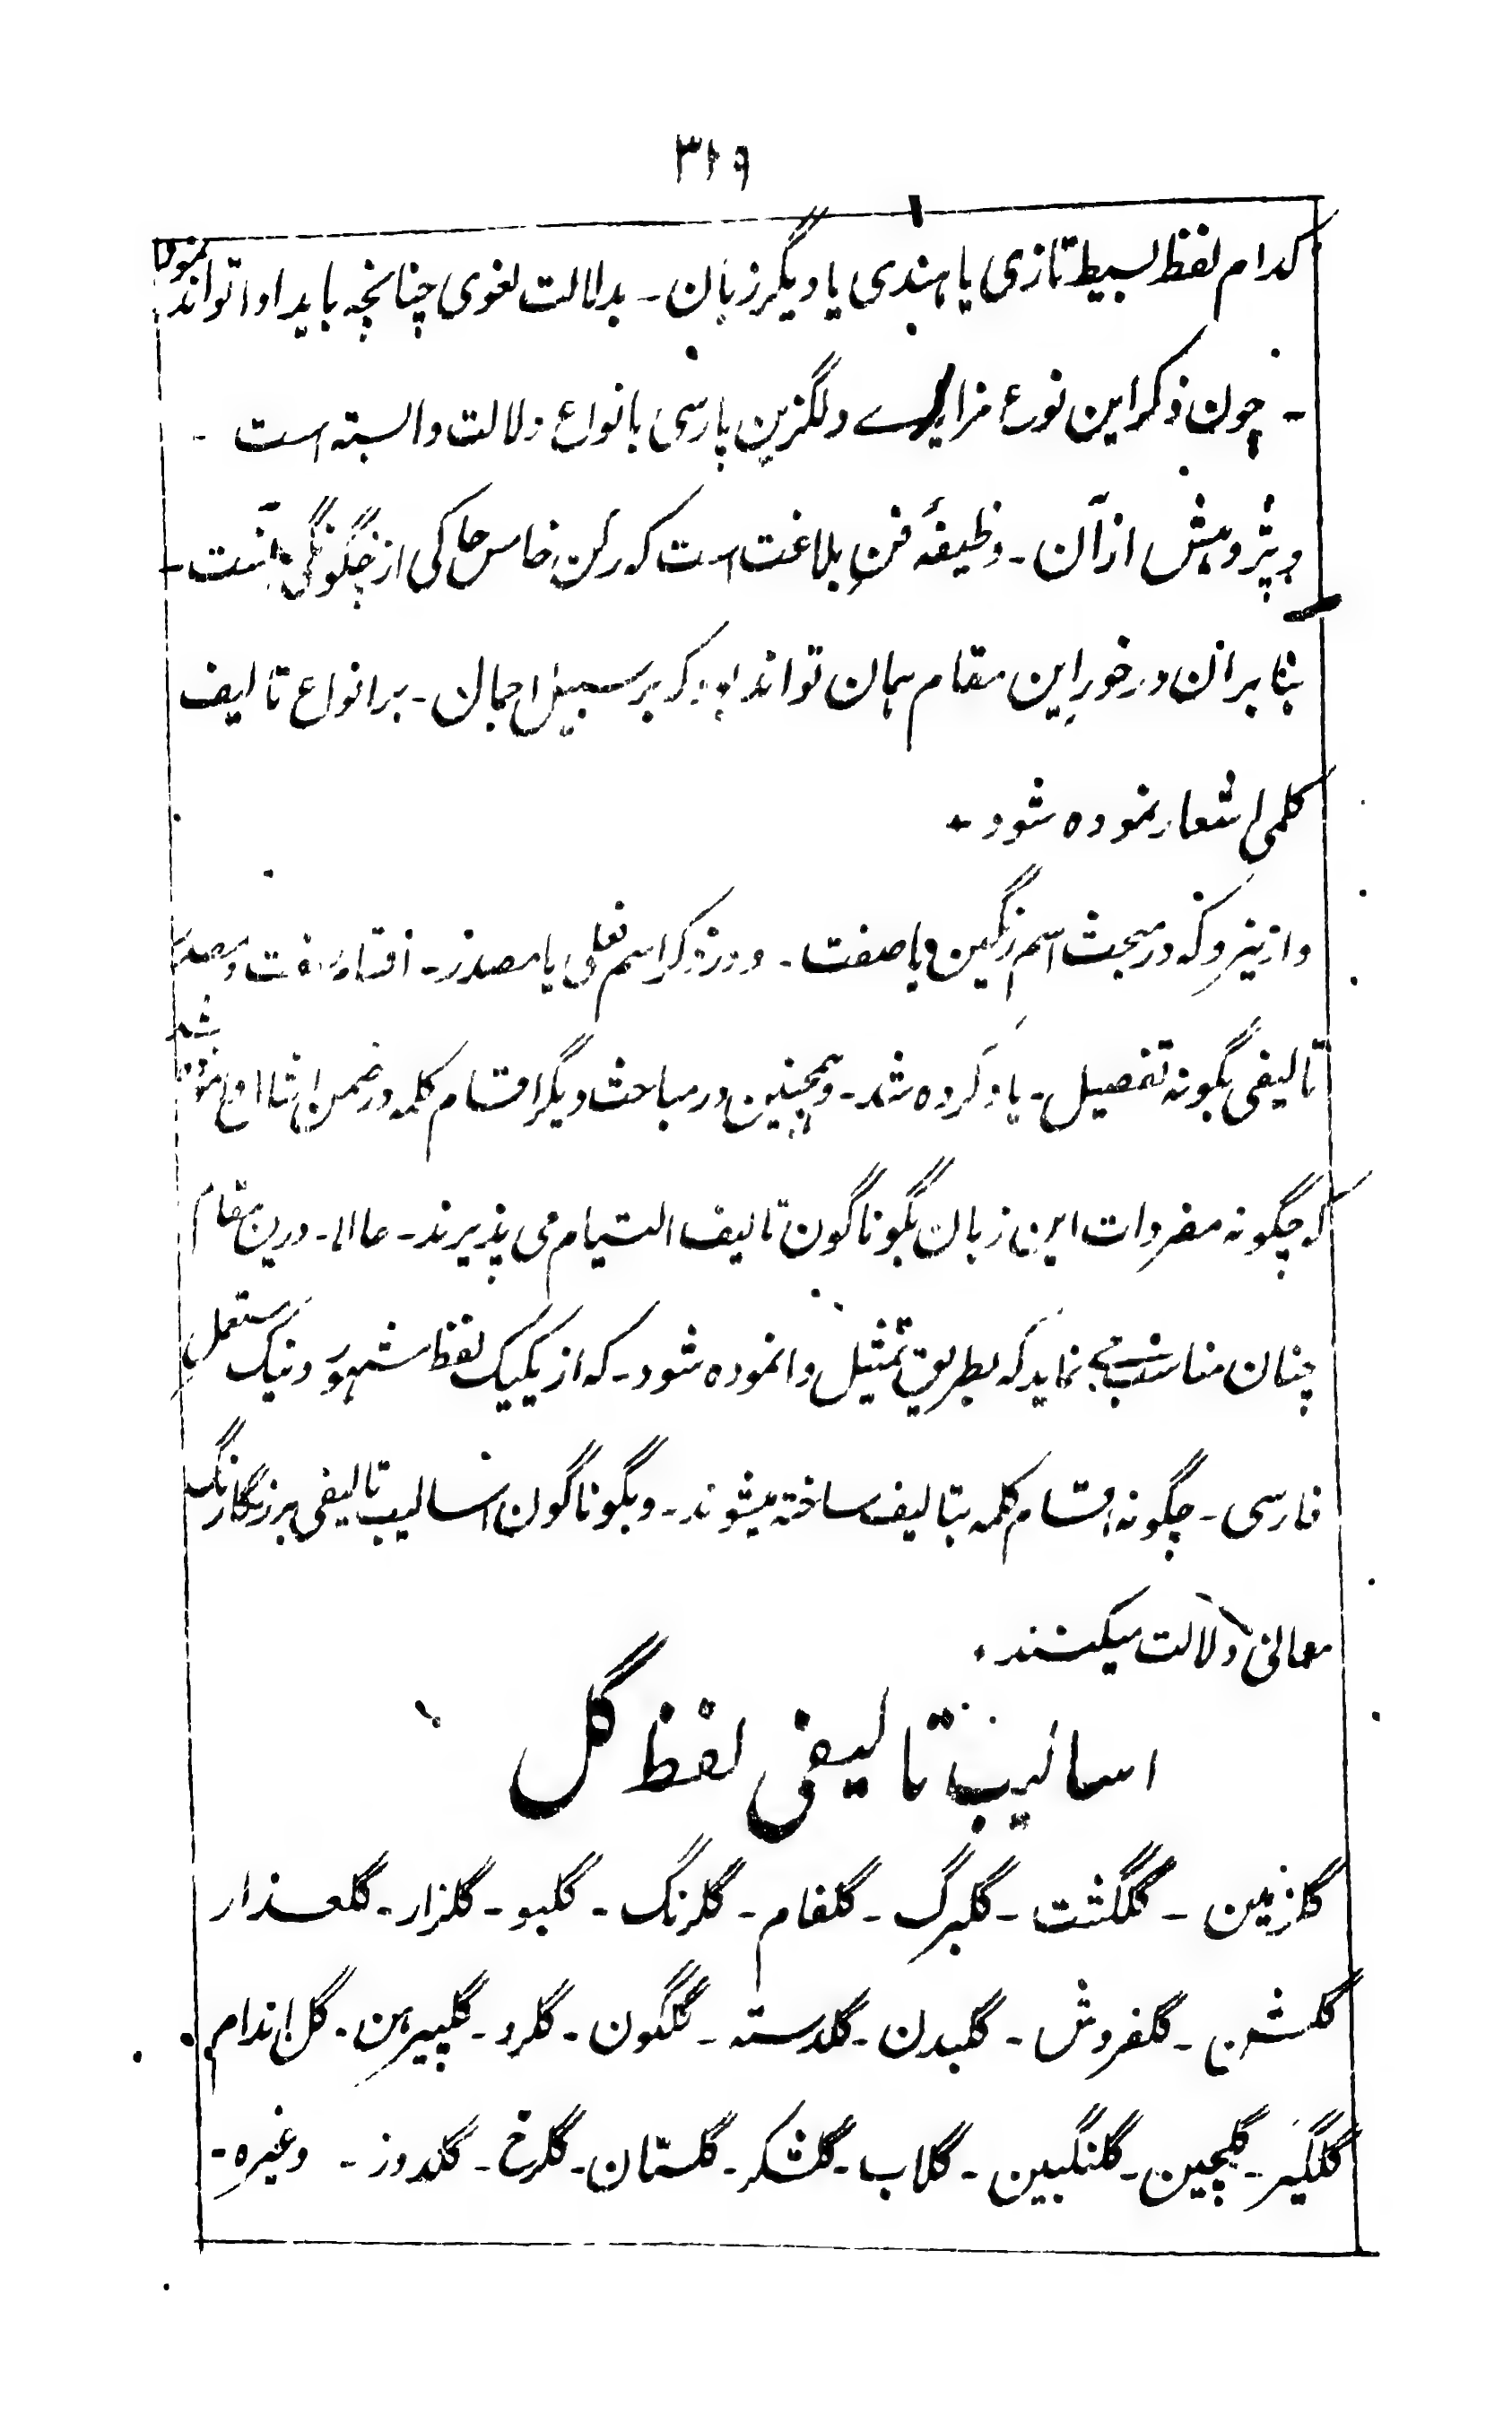 ۳۱۹
کدام لفظ بسیط تازی یا هندی یا دیگر زبان - بدلالت لغوی چنانچه باید ادا تواند نمود
- چون ذکر این نوع مزایای دلگزین پارسی بانواع دلالت وابسته است -
و پژوهش از آن - وظیفهٔ فنِ بلاغت است که رکن خامس حاکی از چگونگی آنست -
بنابران درخورِ این مقام همان تواند بود که بر سبیل اجمال - بر انواع تالیف
کلمی اشعار نموده شود +
و ازینرو که در مبحث اسم رنگین یا صفت - و در ذکر اسم فعلی یا مصدر - اقسام صفت و مصدر
تالیفی بگونه تفصیل - یاد کرده شد - و همچنین در مباحث دیگر اقسام کلمه در ضمن نموده شد
که چگونه مفردات این زبان بگوناگون تالیف التیام می پذیرند - حالا - درین مقام
چنان مناسب می نماید که بطریق تمثیل وا نموده شود - که از یکیک لفظ مشهور و نیک مستعمل
فارسی - چگونه اقسام کلمه بتالیف ساخته میشوند - و بگوناگون اسالیب تالیفی بر رنگارنگ
معانی دلالت میکنند +
اسالیب تالیفی لفظ گل
گلزمین - گلگشت - گلبرگ - گلفام - گلرنگ - گلبو - گلزار - گلعذار
گلشن - گلفروش - گلبدن - گلدسته - گلگون - گلرو - گلپیرهن - گل اندام
گلگیر - گلچین - گلنگبین - گلاب - گلشکر - گلستان - گلرخ - گلدوز - وغیره -